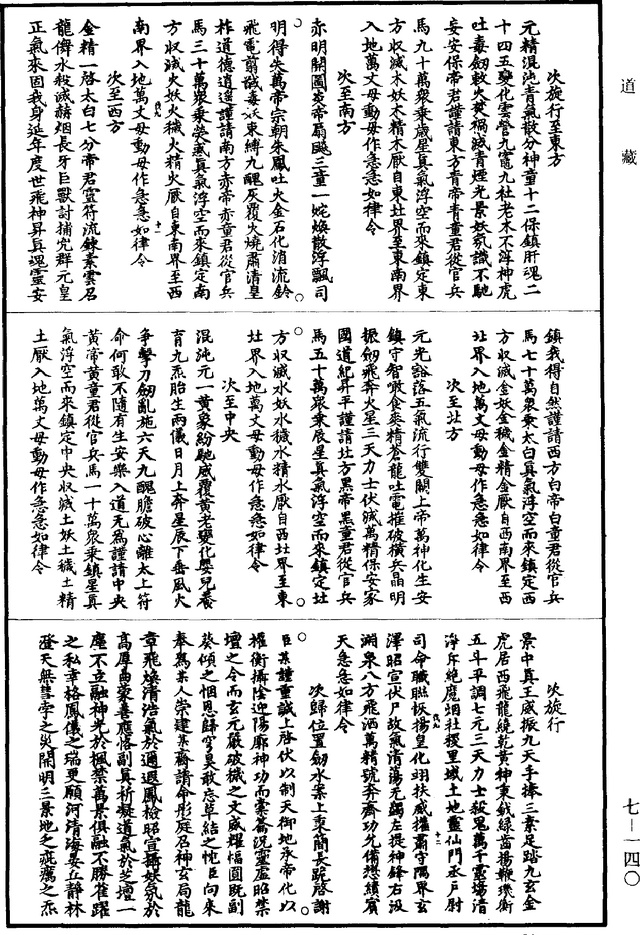 道藏
次旋行至東方
元精混沌青氣散分神童十二保鎮肝魂二
十四五變化雲營九竈九社老木不浮神虎
吐毒劒敕火焚禍滅青煙光景妖氛識不馳
妄安保帝君謹請東方青帝青童君從官兵
馬九十萬衆乘歲星真氣浮空而來鎮定東
方收滅木妖木精木厭自東北界至東南界
入地萬丈毋動毋作急急如律令
次至南方
赤明開圖炎帝扇飈三童一
明得失萬帝宗朝朱鳳吐火金石化消流鈴
飛電翦馘毒妖束縛九醜灰覆火燒肅清皇
祚道德逍遥謹請南方赤帝赤童君從官兵
馬三十萬衆乘熒惑真氣浮空而來鎮定南
方收滅火妖火穢火精火厭自東南界至西
南界入地萬丈毋動毋作急急如律令
次至西方
金精一啓太白七分帝君靈符流鍊素雲名
龍儛水殺滅赫烟長牙巨獸討捕兇群元皇
正氣來固我身延年度世飛神昇真魂靈安
鎮我得自然謹請西方白帝白童君從官兵
馬七十萬衆乘太白真氣浮空而來鎮定西
方收滅金妖金穢金精金厭自西南界至西
北界入地萬丈毋動毋作急急如律令
次至北方
元光谽落五氣流行雙闕上帝萬神化生安
鎮守智噉食炎精蒼龍吐電摧破橫兵晶明
振劒飛奔火星三天力士伏滅萬精保安家
國道紀昇平謹請北方黑帝黑童君從官兵
馬五十萬衆乘辰星真氣浮空而來鎮定北
方收滅水妖水穢水精水厭自西北界至東
北界入地萬丈毋動毋作急急如律令
次至中央
混沌元一黄象紛馳威覆黄老變化嬰兒養
育九炁胎生兩儀日月上奔星辰下垂風火
争擊刀劒亂施六天九醜膽破心離太上符
命何敢不隨有生安樂入道无爲謹請中央
黄帝黄童君從官兵馬一十萬衆乘鎮星真
氣浮空而來鎮定中央收滅土妖土穢土精
土厭入地萬丈毋動毋作急急如律令
次旋行
景中真王威振九天手捧三素足踏九玄金
虎居西飛龍繞乾黄神束鉞緑齒揚鞭璣衡
五斗平調七元三天力士殺鬼萬千靈場清
淨斥絶魔烟社稷里域土地靈仙門丞戶尉
司命職聮恢揚皇化翊扶威權肅守隅界玄
澤昭宣伏尸故氣清蕩无蠲左提神鋒右汲
淵泉八方飛洒萬精號奔齋功允備懋績賓
天急急如律令
次歸位置劒水案上秉簡長跪啓謝
臣某謹重誠上啓伏以制天御地承帝化以
權衡攝陰迎陽廓神功而橐籥況靈虛昭禁
壇之令而玄元嚴破穢之文威耀幅圓既副
葵傾之悃恩歸穹昊敢忘草結之忱臣向來
奉爲某人崇建某齋請命彤庭召神玄局龍
章飛煥清浩氣於邇遐鳳檢昭宣攝妖氛於
高厚曲蒙善應恪副真祈凝道氣於芝壇一
塵不立融神光於楓禁萬景俱融不勝雀躍
之私幸格鳳儀之瑞更願河清海晏丘靜林
澄天無彗孛之災開明三景地乏疵癘之炁
七-一四〇